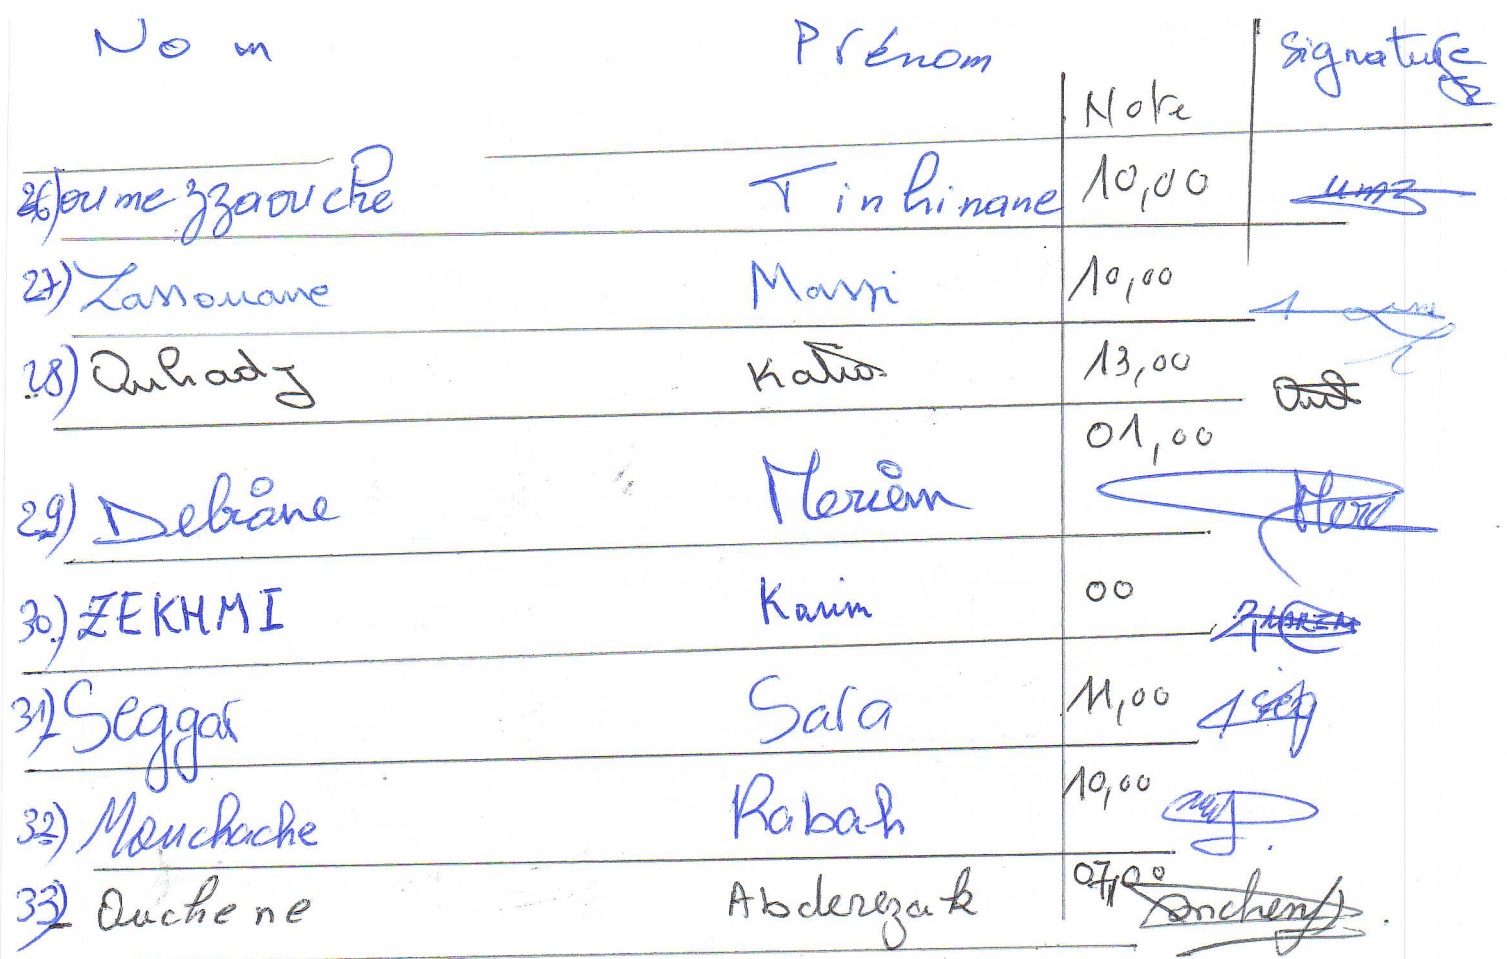 Nom Prénom Note Signature
26) oumezzaouche Tinhinane 10,00 umz
27) Lassouane Massi 10,00
28) Ouhadj Katia 13,00
29) Debiane Meriem 01,00
30) ZEKHMI Karim 00
31) Seggar Sara 11,00
32) Mouchache Rabah 10,00
33) Ouchene Abderezak 07,00